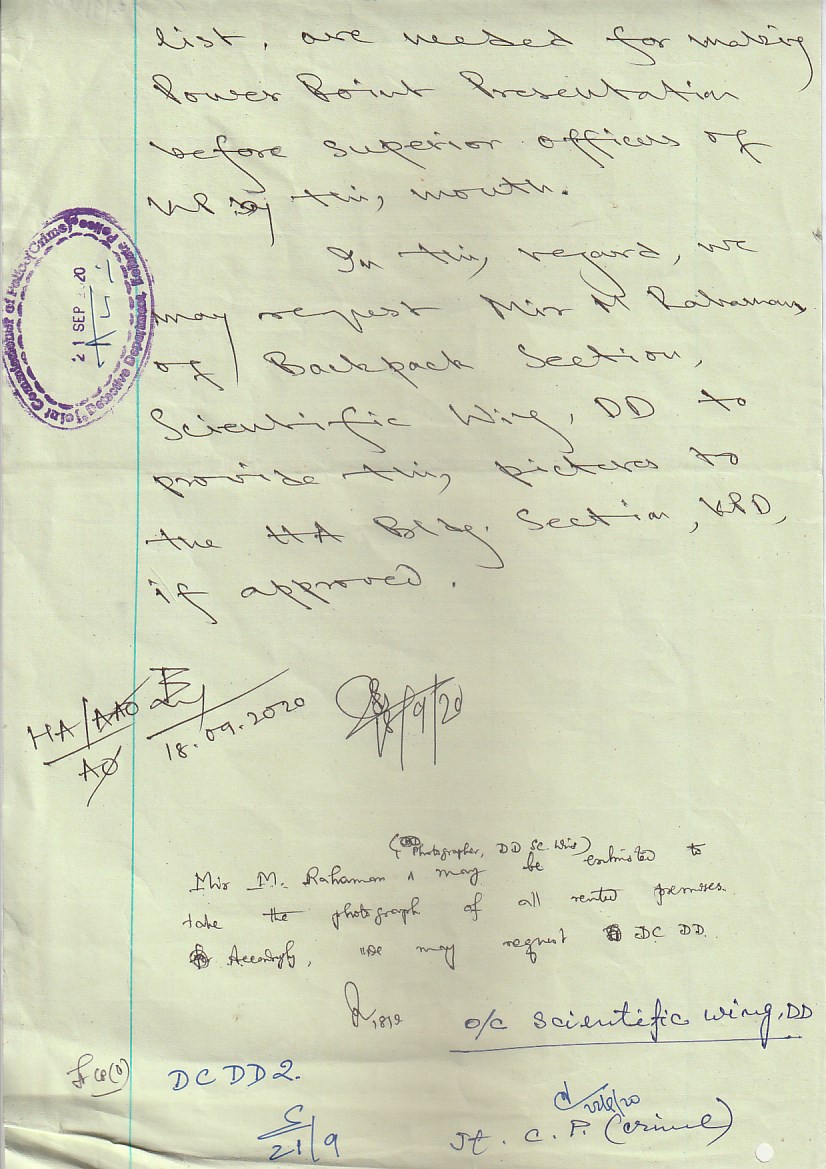 list, are needed for making
Power Point Presentation
before superior officers of
KP by this month.
In this regard, we
may request Mir M Rahaman
of Backpack Section,
Scientific Wing, DD to
provide this pictures to
the HA Bldg. Section, KPD,
if approved.
Joint Commissioner of Police (Crime)
Detective Department Kolkata Police
21 SEP 2020
HA/AAO
AO
18.09.2020
18/9/20
(Photographer, DD Sc. Wing)
Mir M. Rahaman ^ may be entrusted to
take the photograph of all rented premises.
Accordingly, we may request DC DD.
o/c Scientific wing, DD
DC DD 2.
21/9
Jt. C. P. (crime)